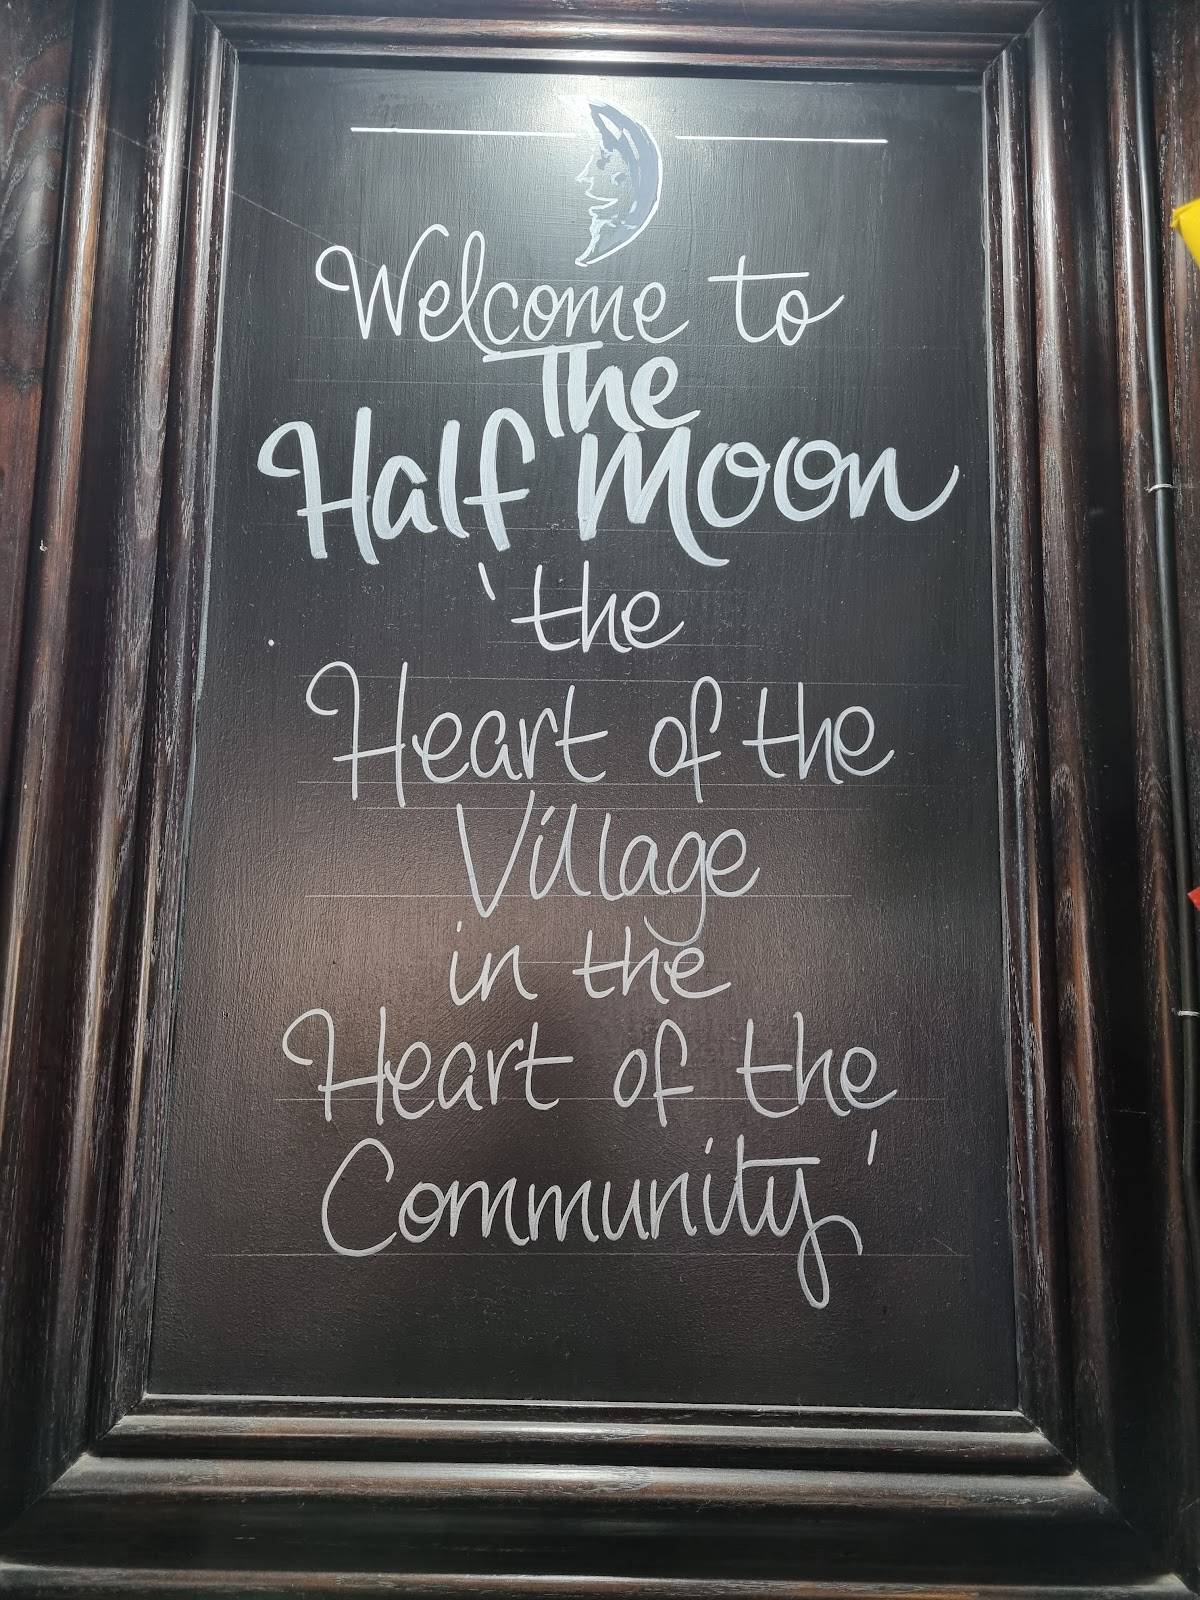 Welcome to
The
Half Moon
'the
Heart of the
Village
in the
Heart of the
Community'